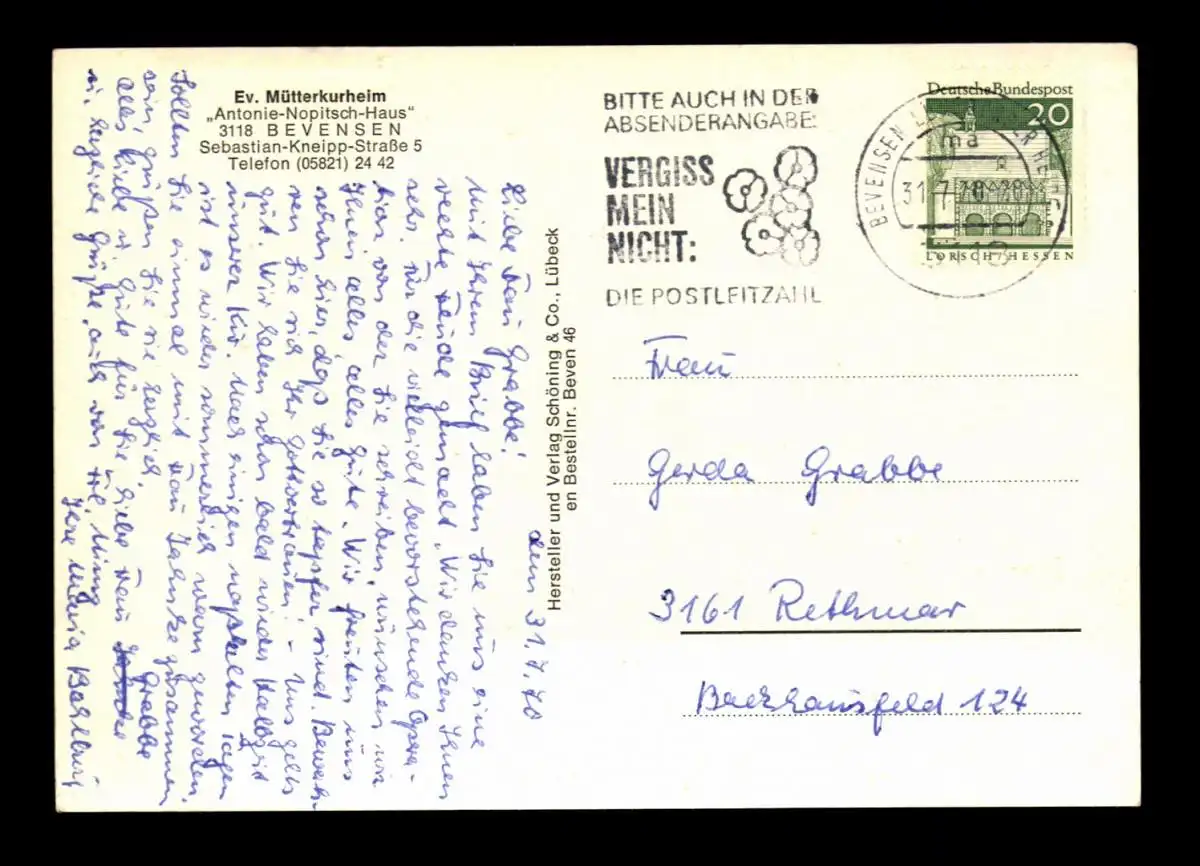 Ev. Mütterkurheim
„Antonie-Nopitsch-Haus"
3118 BEVENSEN
Sebastian-Kneipp-Straße 5
Telefon (05821) 24 42
den 31.7.70
Liebe Frau Grabbe!
Mit Ihrem Brief haben Sie uns eine
große Freude gemacht. Wir danken Ihnen
sehr. Für die vielleicht bevorstehende Opera-
tion von der Sie schreiben, wünschen wir
Ihnen alles alles Gute. Wir freuten uns
schon hier, daß Sie so tapfer sind. Bewah-
ren Sie sich Ihr Gottvertrauen! - Uns geht's
gut. Wir haben schon bald wieder Halbzeit
unserer Kur. Nach einigen naßkalten Tagen
ist es wieder sommerlich warm geworden.
Sollten Sie einmal mit Frau Jahnke zusammen
sein, grüßen Sie sie herzlich.
Alles Liebe u. Gute für Sie, liebe Frau Grabbe
u. herzliche Grüße, auch von
Ihre Maria
Hersteller und Verlag Schöning & Co., Lübeck
en Bestellnr. Beven 46
BITTE AUCH IN DER
ABSENDERANGABE:
VERGISS
MEIN
NICHT:
DIE POSTLEITZAHL
BEVENSEN
31.7.70
3118
Deutsche Bundespost
20
LORSCH/HESSEN
Frau
Gerda Grabbe
3161 Rethmar
Backhausfeld 124